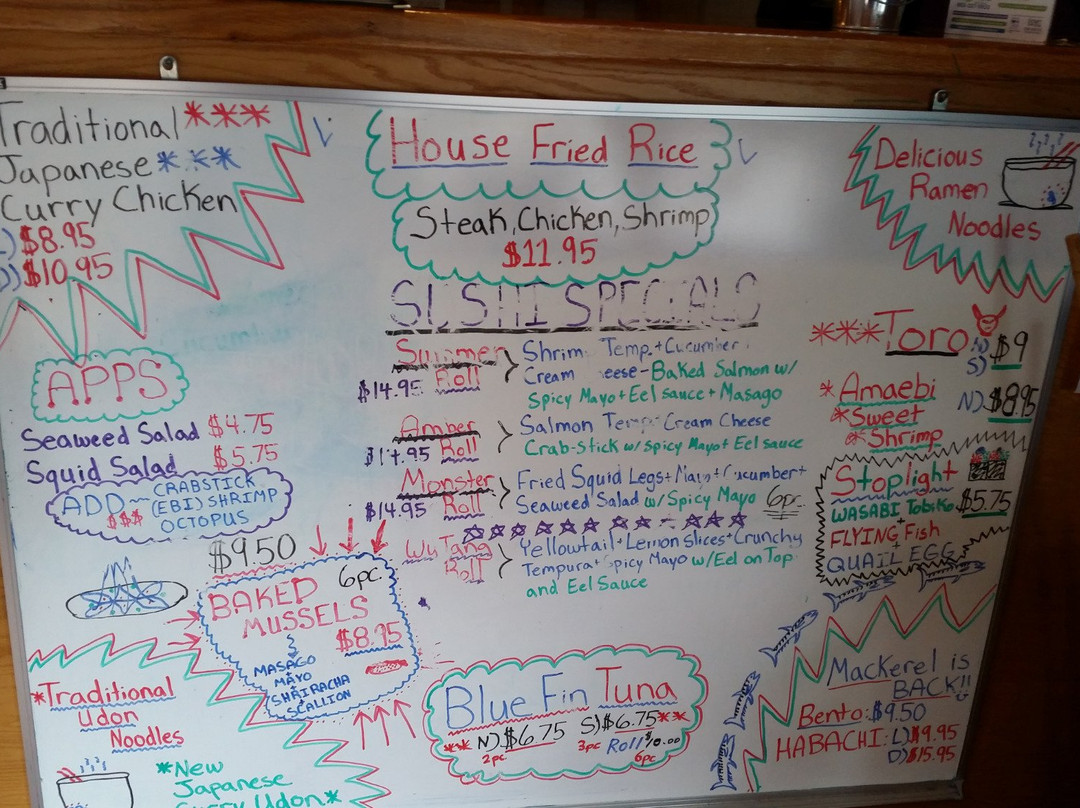 Traditional ***
Japanese ***
Curry Chicken
L) $8.95
D) $10.95
House Fried Rice
Steak, Chicken, Shrimp
$11.95
Delicious
Ramen
Noodles
SUSHI SPECIALS
Summer Roll $14.95
Shrim Temp. + Cucumber
Cream eese - Baked Salmon w/
Spicy Mayo + Eel sauce + Masago
Amber Roll $14.95
Salmon Temp. Cream Cheese
Crab-stick w/ Spicy Mayo + Eel sauce
Monster Roll $14.95
Fried Squid Legs + Mayo + Cucumber +
Seaweed Salad w/ Spicy Mayo 6pc.
Wu Tang Roll
Yellowtail + Lemon slices + Crunchy
Tempura + Spicy Mayo w/ Eel on Top
and Eel Sauce
APPS
Seaweed Salad $4.75
Squid Salad $5.75
ADD ~ CRABSTICK
$$$ (EBI) SHRIMP
OCTOPUS
$9.50
6pc.
BAKED
MUSSELS
$8.95
MASAGO
+
MAYO
+
SHRIRACHA
+
SCALLION
***Toro N) $9
S)
*Amaebi N) $8.95
*Sweet
*Shrimp
Stoplight
WASABI Tobiko $5.75
+
FLYING Fish
+
QUAIL EGG
*Traditional
Udon
Noodles
*New
Japanese
Curry Udon*
Blue Fin Tuna
** N) $6.75 S) $6.75 **
2pc. 3pc Roll $10.00
6pc
Mackerel is
BACK!!
Bento: $9.50
HABACHI: L) $9.95
D) $15.95